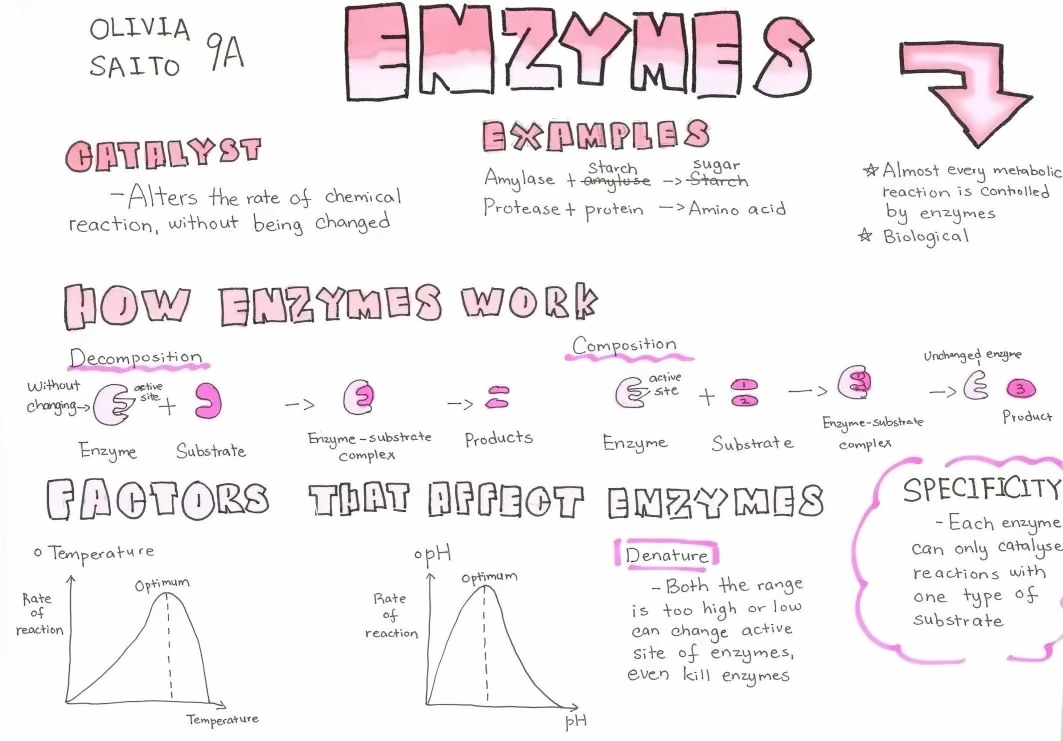 OLIVIA
SAITO 9A
ENZYMES
CATALYST
-Alters the rate of chemical
reaction, without being changed
EXAMPLES
Starch sugar
Amylase + amylose -> Starch
Protease + protein -> Amino acid
☆ Almost every metabolic
reaction is controlled
by enzymes
☆ Biological
HOW ENZYMES WORK
Decomposition
Without
changing→
active
site
+
->
->
Enzyme
Substrate
Enzyme-substrate
complex
Products
Composition
active
site
+
1
2
->
->
Unchanged enzyme
3
Enzyme
Substrate
Enzyme-substrate
complex
Product
FACTORS THAT AFFECT ENZYMES
o Temperature
Optimum
Rate
of
reaction
Temperature
o pH
Optimum
Rate
of
reaction
pH
Denature
- Both the range
is too high or low
can change active
site of enzymes,
even kill enzymes
SPECIFICITY
- Each enzyme
can only catalyse
reactions with
one type of
substrate